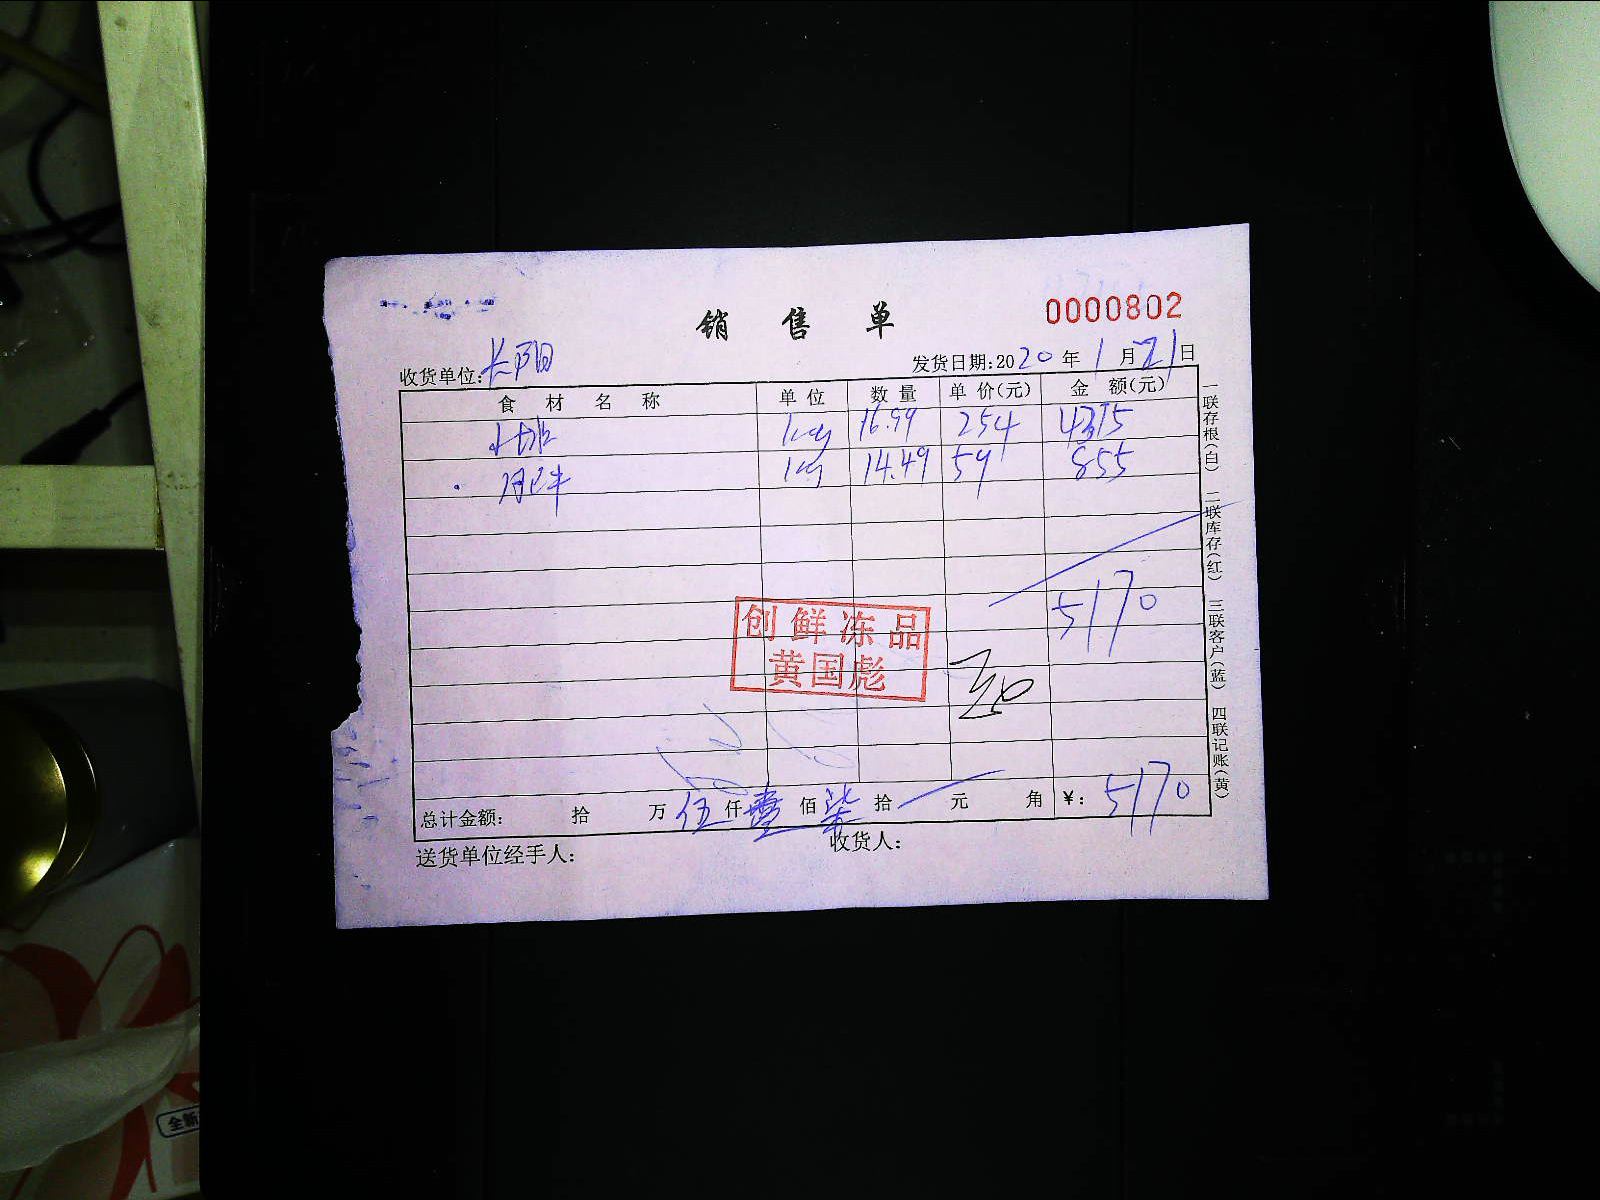 销售单
0000802
收货单位: 长阳
发货日期:2020年1月21日
食材名称 单位 数量 单价(元) 金额(元)
kg 16.99 254 4315
肥牛 kg 14.49 59 855
5170
创鲜冻品
黄国彪
总计金额: 拾 万 伍仟 壹佰 柒拾 元 角 ¥: 5170
送货单位经手人: 收货人:
一联存根(白) 二联库存(红) 三联客户(蓝) 四联记账(黄)
全新